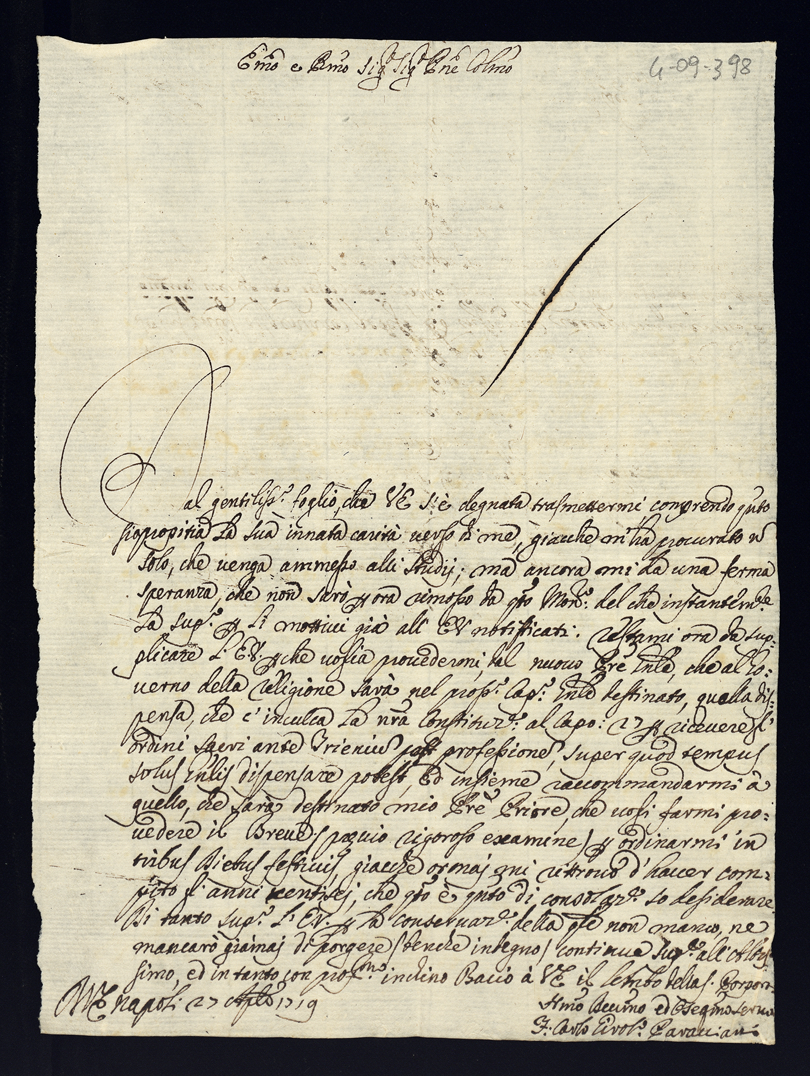 Emo e Rmo Sigr Sigr Pne Colmo
4-09-398
Dal gentiliss.º foglio, che VE s'è degnata trasmettermi comprendo quto
la sua innata carità verso di me, giacche m'ha procurato n
solo, che venga ammesso alli studij; mà ancora mi dà una ferma
speranza, che non sarò p ora rimosso da qto Monro. del che instantemte
la supco. p li mottivi già all' EV notificati. Restami ora da sup:
plicare l'EV. p che voglia provedermi, dal nuovo Pre Gnle, che al Go:
verno della Religione sarà nel prosso. Capo. Gnle destinato, quella dis:
pensa, che c'inculca la nra Constituze. al Capo: 27 p ricevere gl'
ordini sacri ante Trienium post professionem, super quod tempus
solus Gnlis dispensare potest, Ed insieme raccommandarmi à
quello, che sarà destinato mio Pre Priore, che vogli farmi pro:
vedere il Breve (previo rigoroso examine) p ordinarmi in
tribus diebus festivis, giacche ormai mi ritrovo d'haver com=
pito l'anni ventisei, che qto è quto di consolaze. io desiderare.
Di tanto supco. l'EV. p la conservaze. della qle non manco, ne
mancarò giamai di porgere (benche indegno) continue supe. all'Altis:
simo, ed in tanto con profmo. inclino Bacio à VE il lembo della S. Porpora
Di VE Napoli 27 1719
Hmo Devmo ed Osseqmo servo
F. Carlo